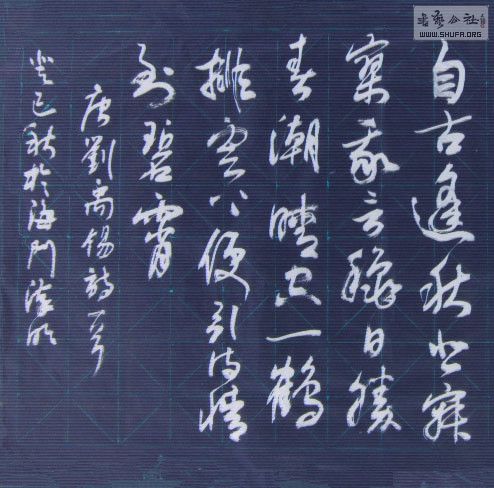 自古逢秋悲寂
寥我言秋日勝
春潮晴空一鶴
排雲上便引詩情
到碧霄
唐劉禹錫詩一首
癸巳秋於海門
書藝公社
WWW.SHUFA.ORG